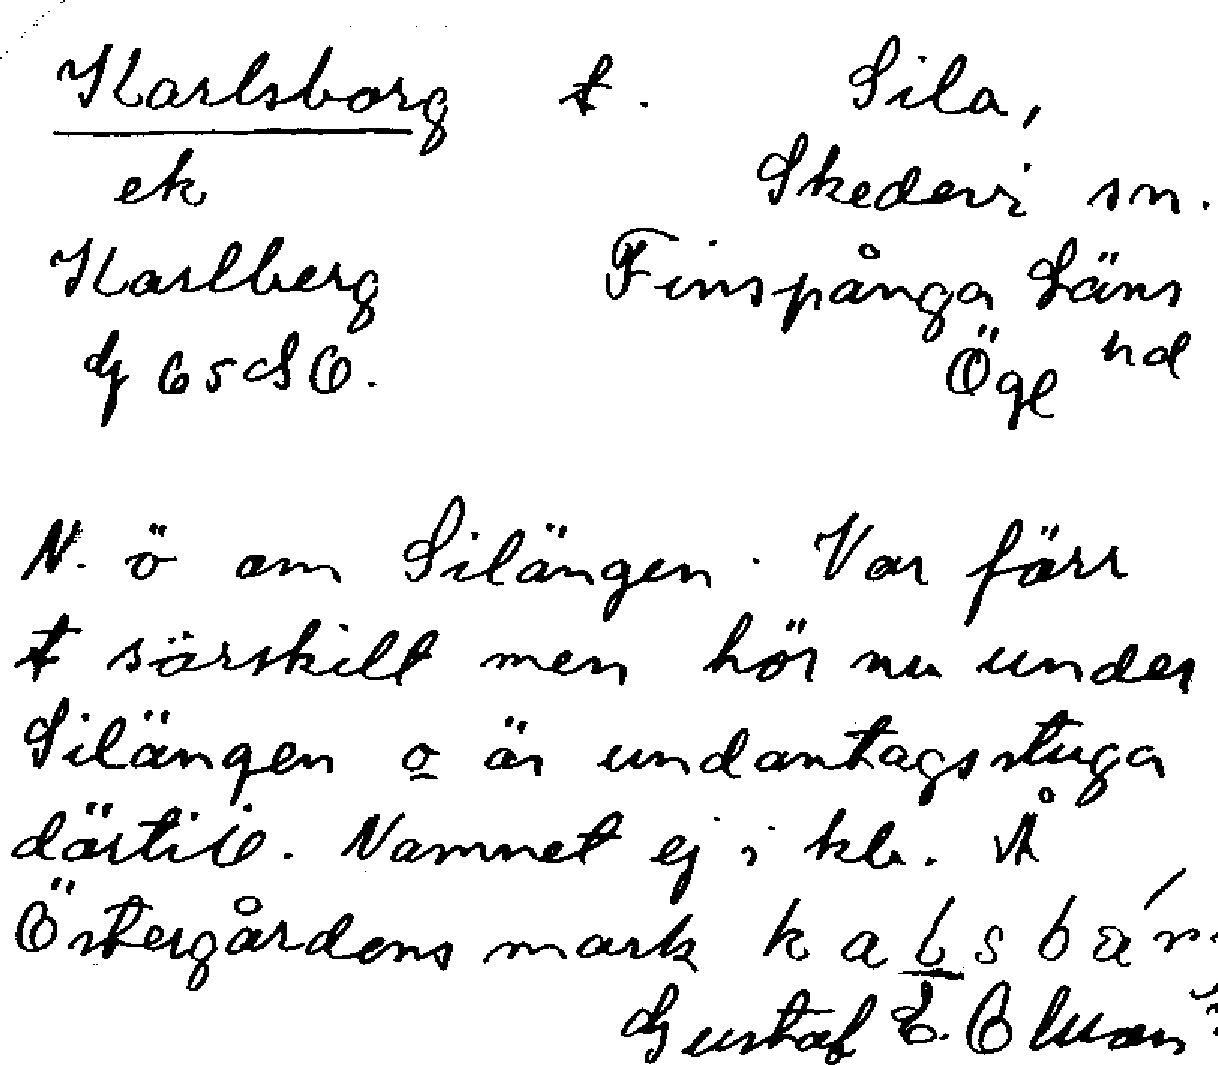 Karlsborg t. Sila,
ek Skedevi sn.
Karlberg Finspånga Läns
G 65 SO. Ögl hd
N. ö om Silängen. Var förr
t särskilt men hör nu under
Silängen o är undantagsstuga
därtill. Namnet ej i kb. Å
Östergårdens mark kalsbä́r
Gustaf E.